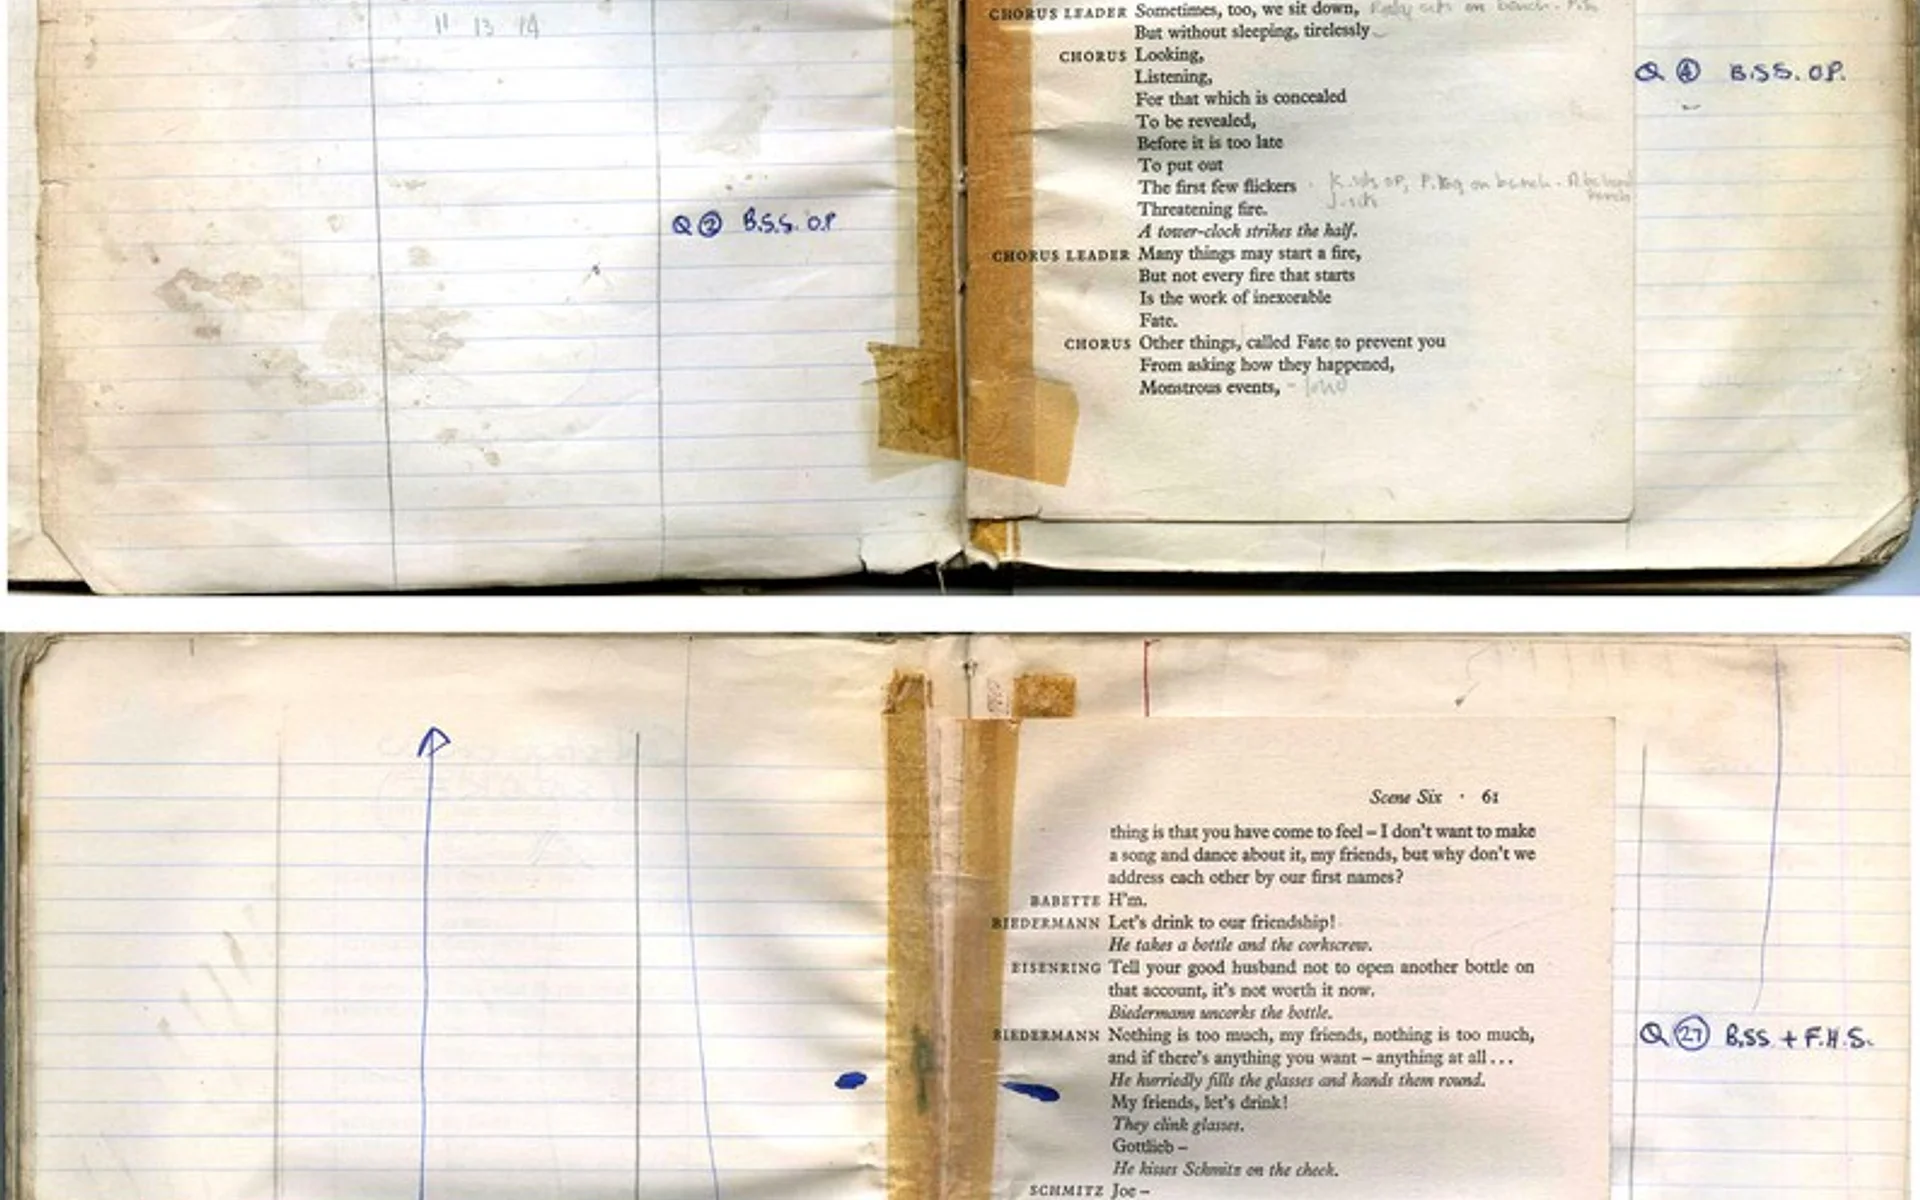 11 13 14
Q ② B.S.S. O.P
CHORUS LEADER Sometimes, too, we sit down,
But without sleeping, tirelessly
CHORUS Looking,
Listening,
For that which is concealed
To be revealed,
Before it is too late
To put out
The first few flickers
Threatening fire.
A tower-clock strikes the half.
CHORUS LEADER Many things may start a fire,
But not every fire that starts
Is the work of inexorable
Fate.
CHORUS Other things, called Fate to prevent you
From asking how they happened,
Monstrous events,
Q ④ B.S.S. O.P.
Scene Six · 61
thing is that you have come to feel – I don't want to make
a song and dance about it, my friends, but why don't we
address each other by our first names?
BABETTE H'm.
BIEDERMANN Let's drink to our friendship!
He takes a bottle and the corkscrew.
EISENRING Tell your good husband not to open another bottle on
that account, it's not worth it now.
Biedermann uncorks the bottle.
BIEDERMANN Nothing is too much, my friends, nothing is too much,
and if there's anything you want – anything at all ...
He hurriedly fills the glasses and hands them round.
My friends, let's drink!
They clink glasses.
Gottlieb –
He kisses Schmitz on the cheek.
SCHMITZ Joe –
Q ㉗ B.S.S. + F.H.S.